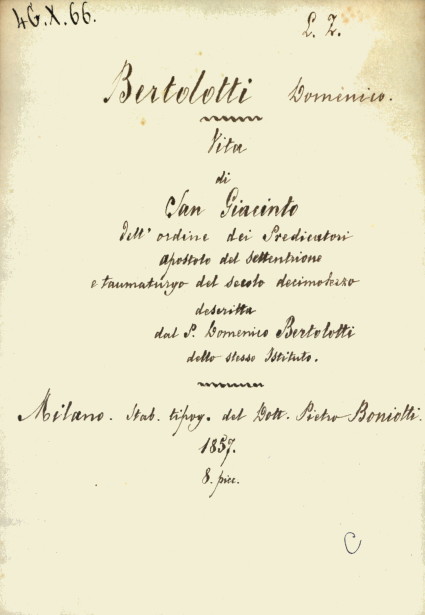 46.X.66.
L. Z.
Bertolotti Domenico.
Vita
di
San Giacinto
dell' ordine dei Predicatori
apostolo del settentrione
e taumaturgo del secolo decimoterzo
descritta
dal P. Domenico Bertolotti
dello stesso Istituto.
Milano. Stab. tipog. del Dott. Pietro Boniotti.
1857.
8. picc.
C